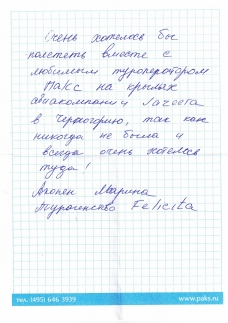 Очень хотелось бы
полететь вместе с
любимым туроператором
Пакс на крыльях
авиакомпании Jat
в Черногорию, так как
никогда не была и
всегда очень хотелось
туда!
Марина
Турагенство Felicita
тел. (495) 646 3939
www.paks.ru